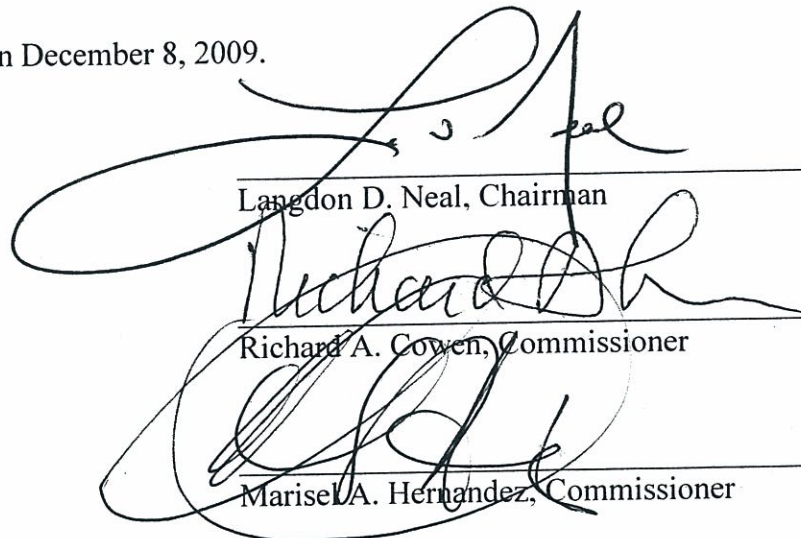 n December 8, 2009.
Langdon D. Neal, Chairman
Richard
Richard A. Cowen, Commissioner
Marisel A. Hernandez, Commissioner